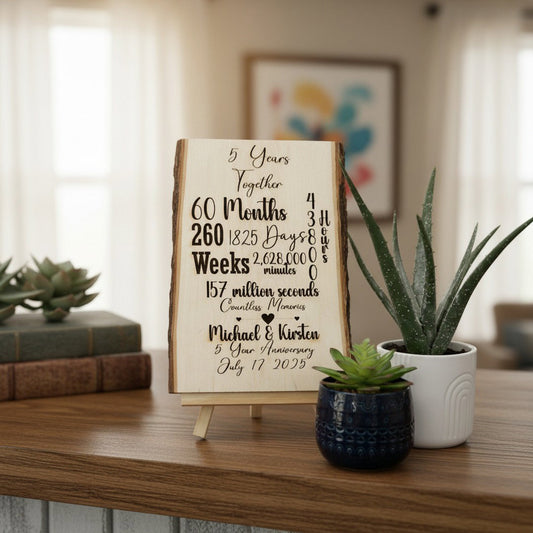 5 Years
Together
60 Months
260 Weeks
1825 Days
43800
Hours
2,628,000
minutes
157 million seconds
Countless Memories
Michael & Kirsten
5 Year Anniversary
July 17 2025